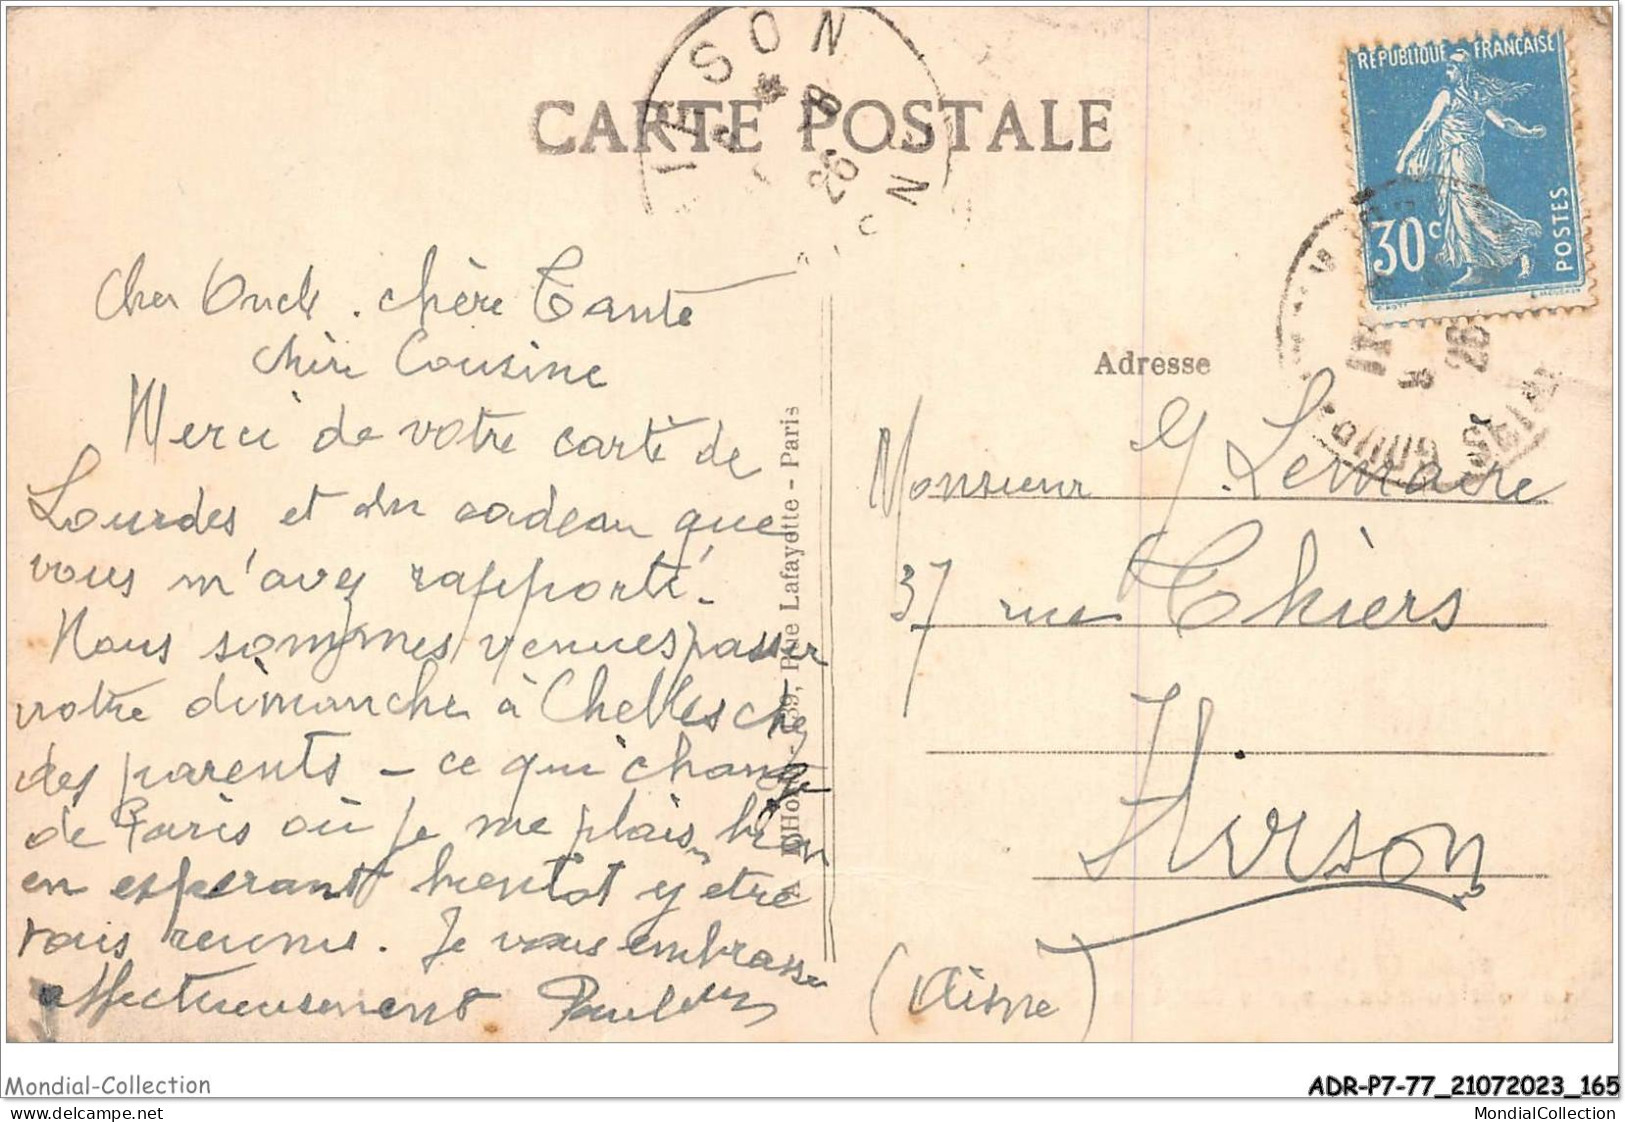 CARTE POSTALE
RÉPUBLIQUE FRANÇAISE
30 c
POSTES
Cher Oncle. chère Tante
chère Cousine
Merci de votre carte de
Lourdes et du cadeau que
vous m'avez rapporté.
Nous sommes venues passer
notre dimanche à Chelles chez
des parents - ce qui change
de Paris où je me plais bien
en espérant bientot y etre
tous reunis. Je vous embrasse
affectueusement
Adresse
Monsieur G. Lemaire
37 rue Thiers
Hirson
(Aisne)
39, Rue Lafayette - Paris
Mondial-Collection
delcampe.net
ADR-P7-77_21072023_165
MondialCollection